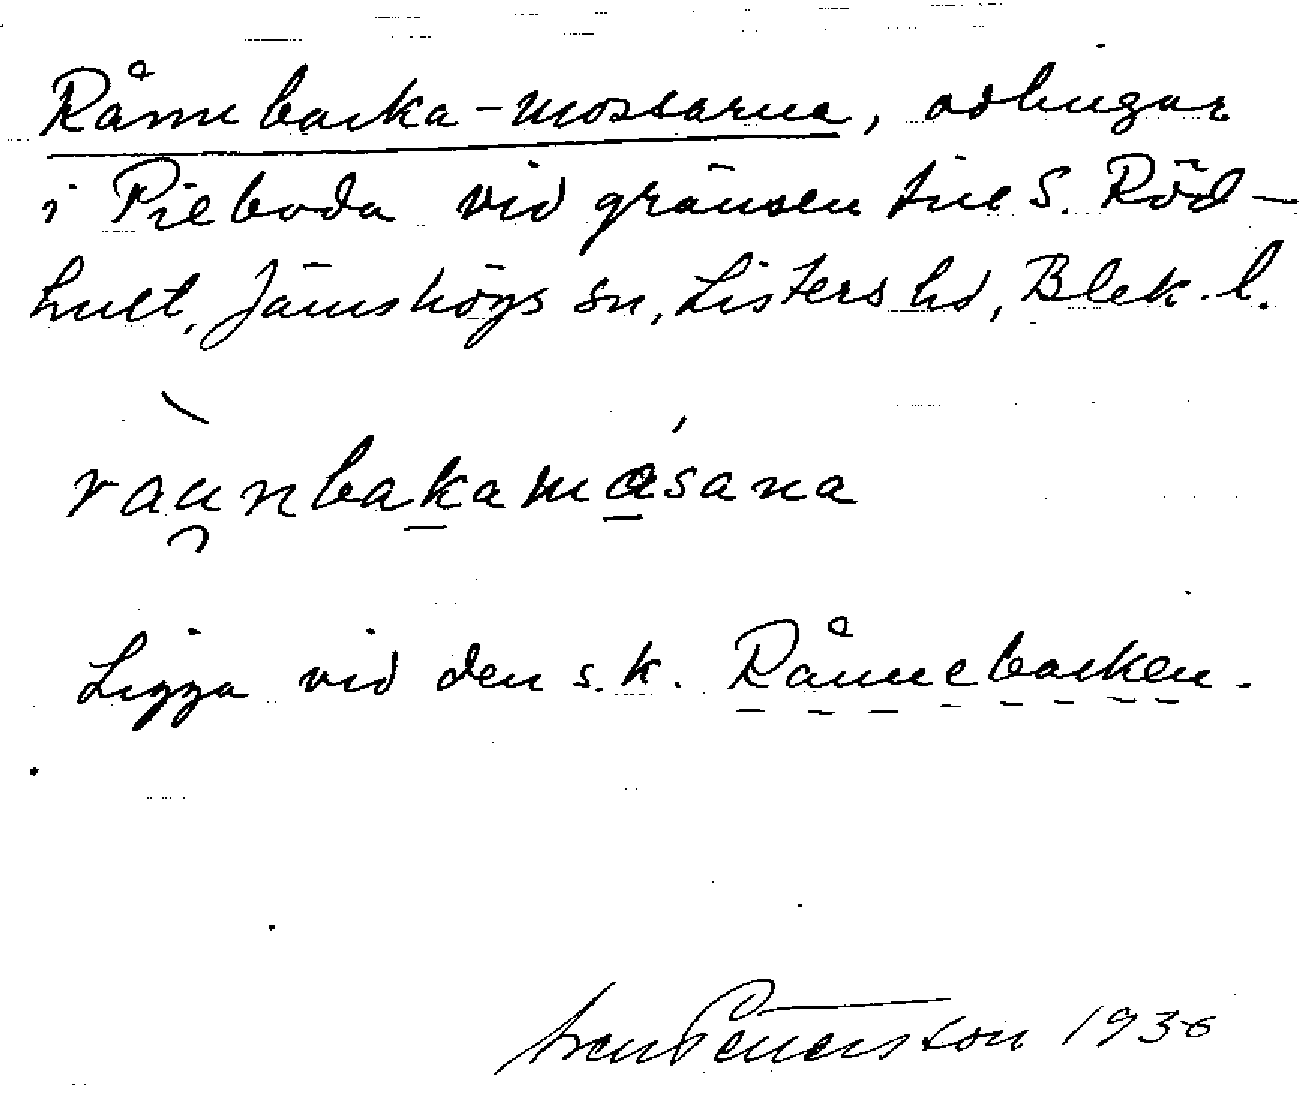 Rånnebacka-mossarna, odlingar
i Pieboda vid gränsen till S. Röd-
hult, Jämshögs sn, Listers hd, Blek. l.
raunbakamåsana
Ligga vid den s.k. Rånnebacken.
Pettersson 1936